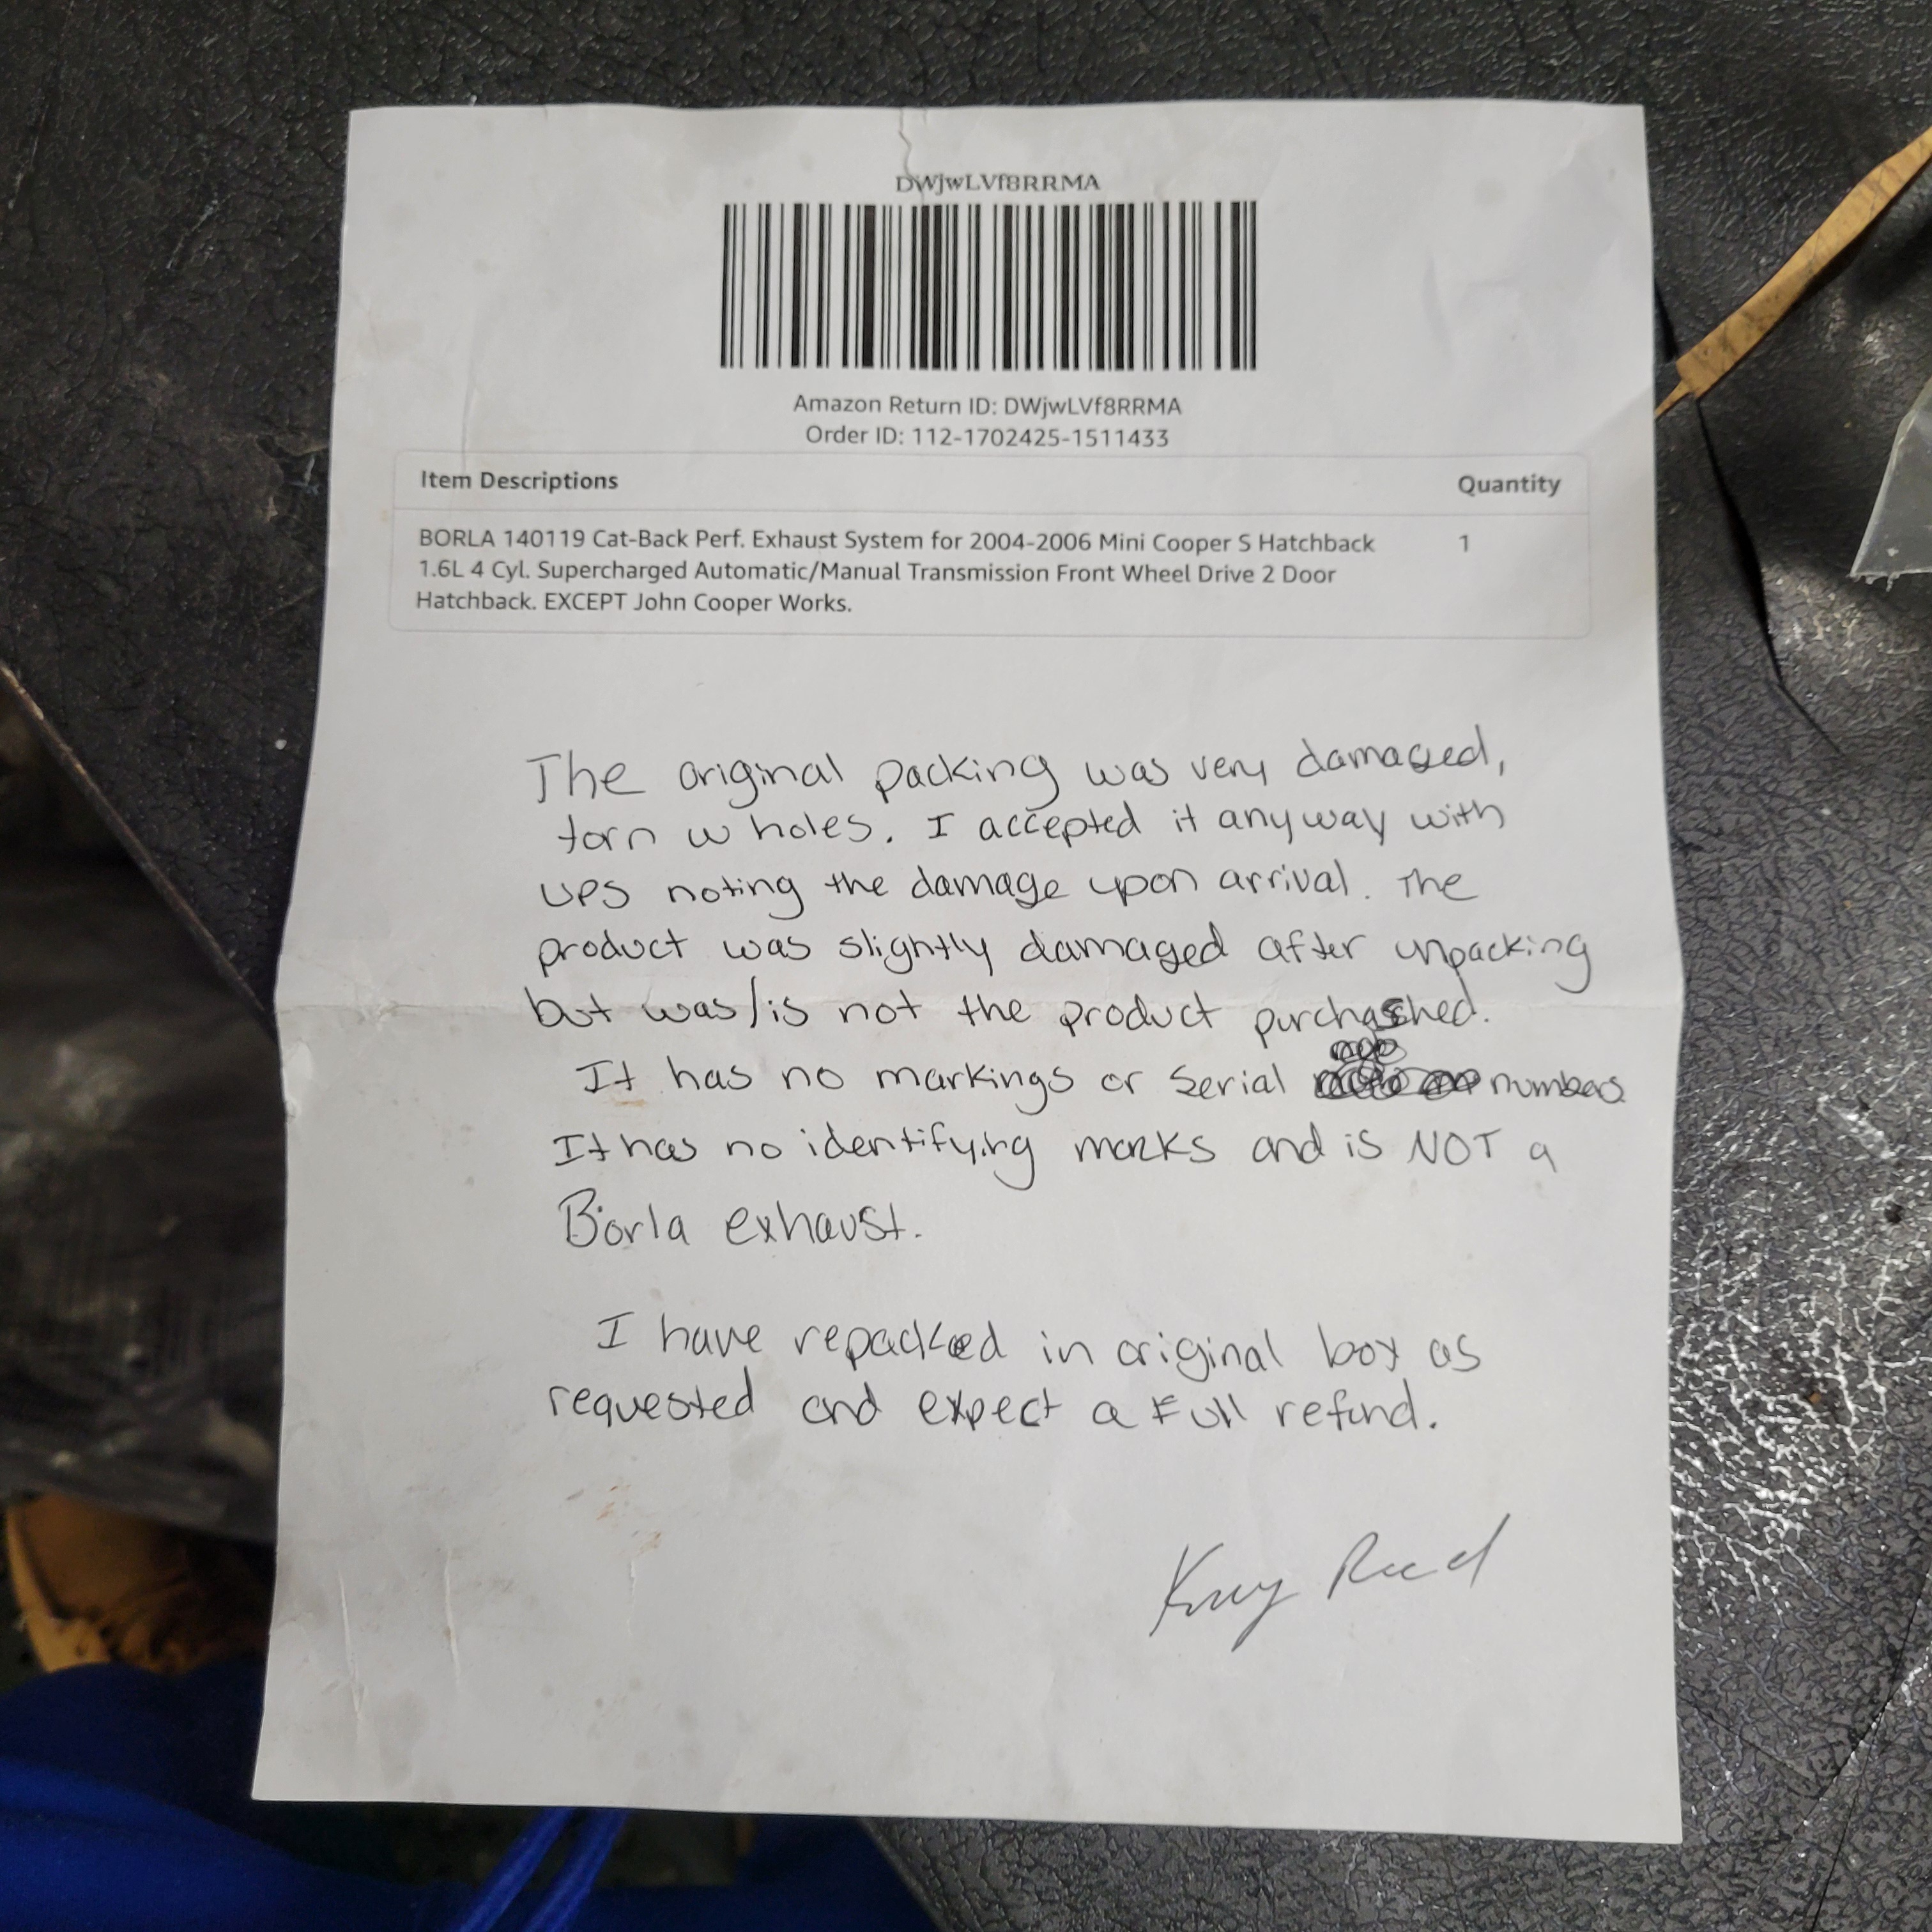 DWjwLVf8RRMA
Amazon Return ID: DWjwLVf8RRMA
Order ID: 112-1702425-1511433
Item Descriptions Quantity
BORLA 140119 Cat-Back Perf. Exhaust System for 2004-2006 Mini Cooper S Hatchback 1
1.6L 4 Cyl. Supercharged Automatic/Manual Transmission Front Wheel Drive 2 Door
Hatchback. EXCEPT John Cooper Works.
The original packing was very damaged,
torn w holes. I accepted it anyway with
UPS noting the damage upon arrival. The
product was slightly damaged after unpacking
but was/is not the product purchashed.
It has no markings or serial numbers
It has no identifying marks and is NOT a
Borla exhaust.
I have repacked in original box as
requested and expect a Full refund.
Reed